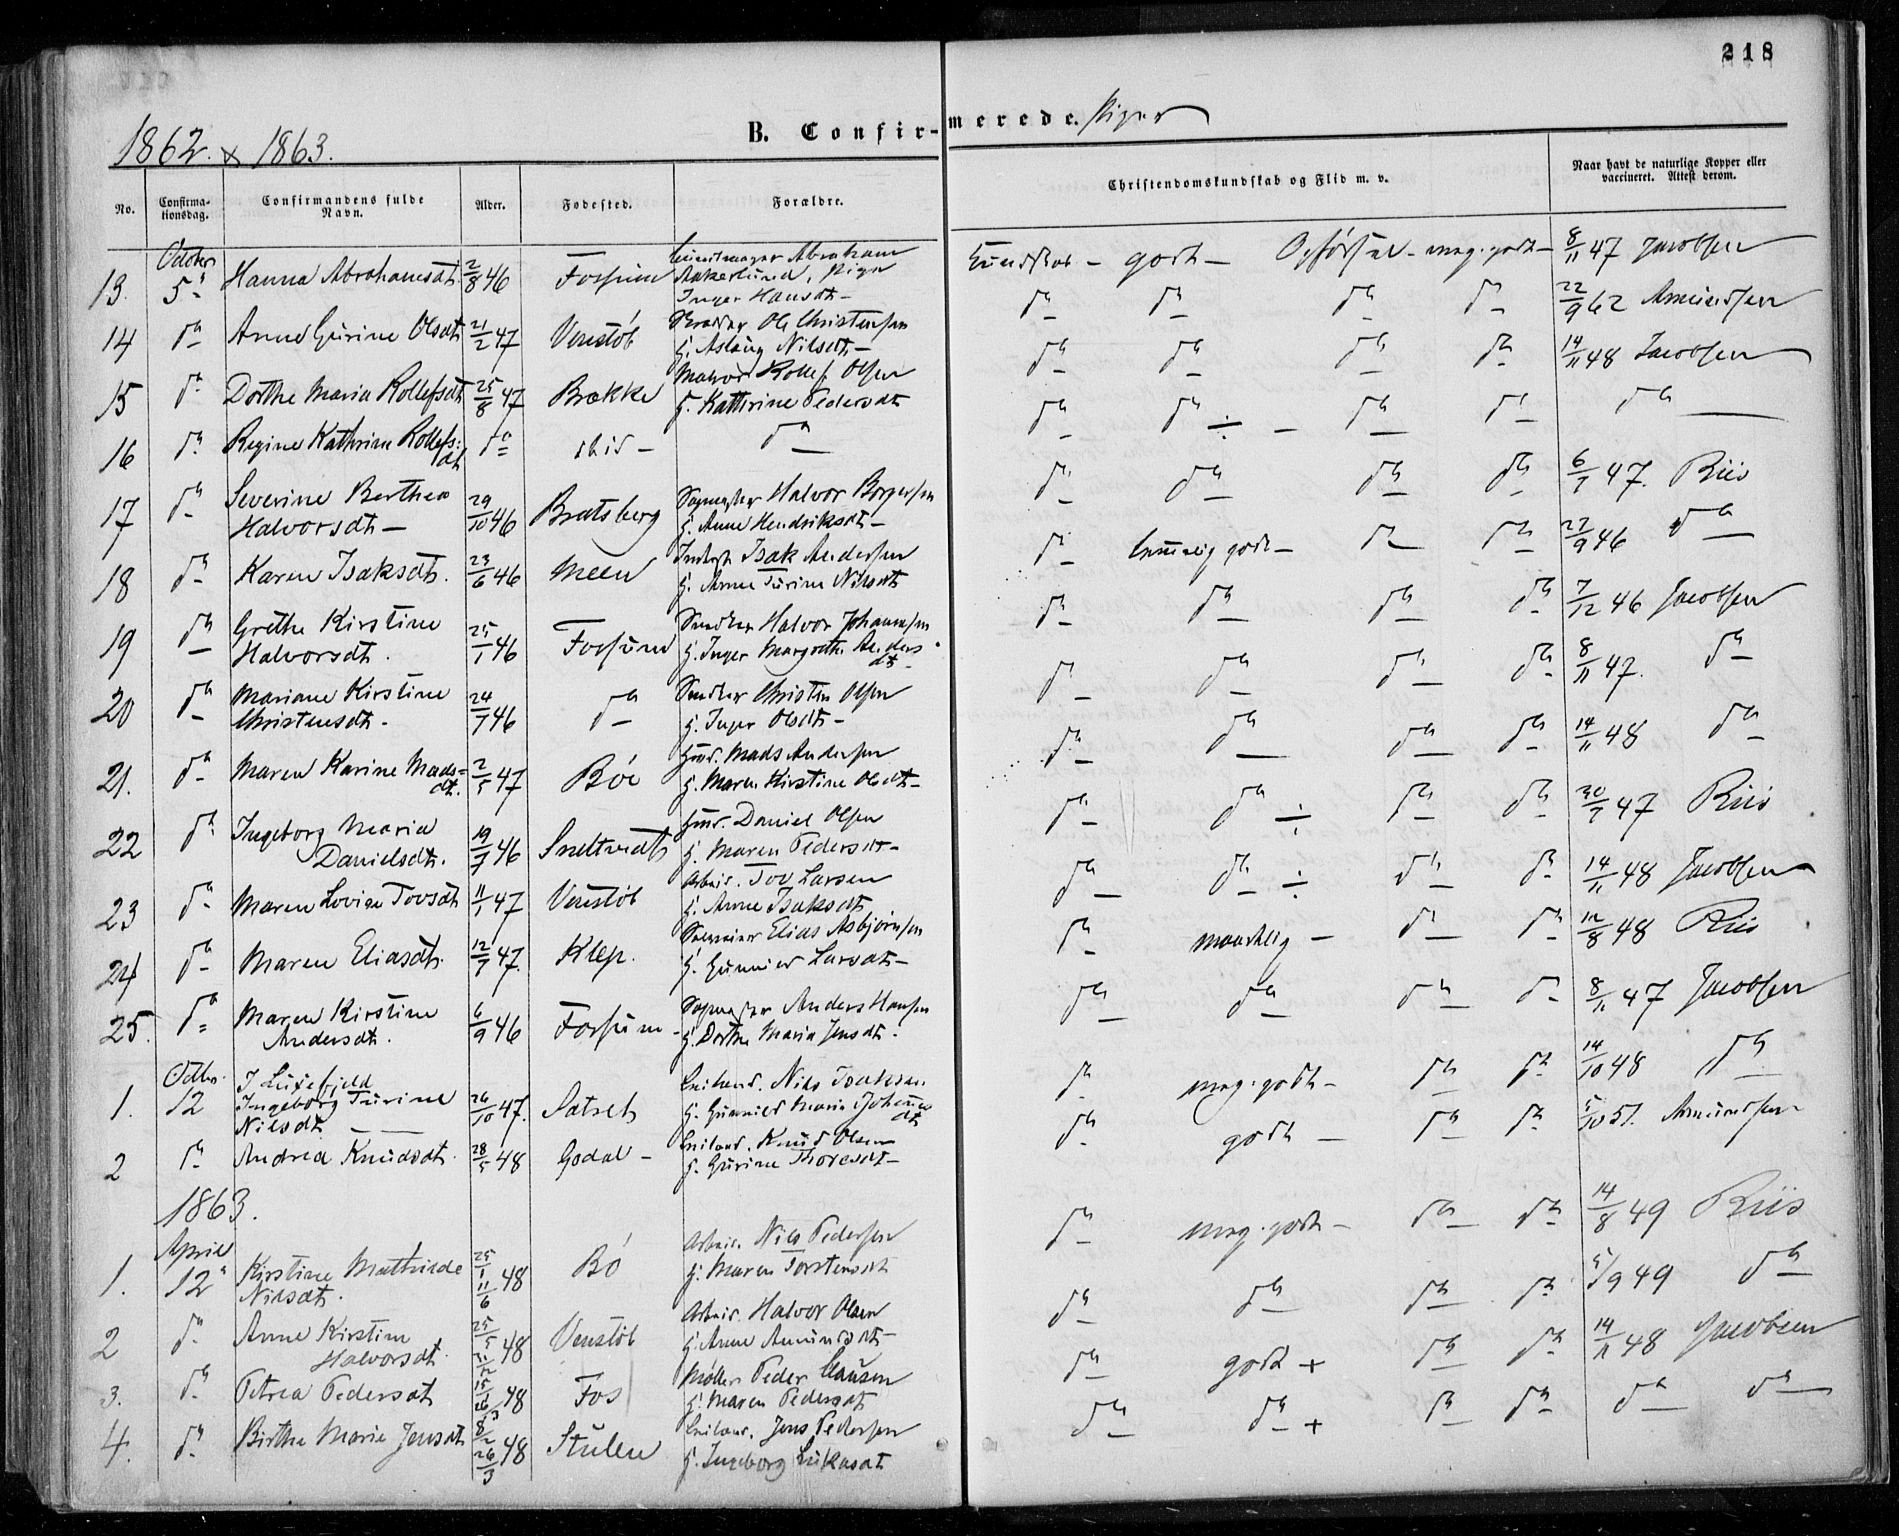 218
B. Confirmerede. Piger
1862. x 1863.
No. Confirmationsdag. Confirmandens fulde Navn. Alder. Fødested. Forældre. Christendomskundskab og Flid m. v. Naar havt de naturlige Kopper eller vaccineret. Attest derom.
13. October 5 Hanna Abrahamsdt. 2/8 46 Fossum Abraham Aakerlund, Pige Inger Hansdt - Kundskab - godt - Opførsel - meg. godt - 8/11 47 Jacobsen
14 do Anne Gurine Olsdt 21/2 47 Venstøb Ole Christensen H. Aslaug Nilsdt - do do do do 22/9 62 Amundsen
15 do Dorthe Maria Rollefsdt 25/8 47 Brække Rollef Olsen H. Kathrine Pedersdt do do do do 14/11 48 Jacobsen
16 do Regine Kathrine Rollefs:dt do ibid - do do do ÷ - do do do
17 do Severine Berthea Halvorsdt - 29/10 46 Bratsberg Sagmester Halvor Borgersen H. Anne Hendriksdt - do do do do 6/7 47. Riis
18 do Karen Isaksdt. 23/6 46 Meen Isak Andersen H. Anne Turine Nilsdt do temmelig godt - do do 27/9 46 do
19 do Grethe Kirstine Halvorsdt. 25/1 46 Fossum Snedker Halvor Johannesen H. Inger Margrethe Andersdt - do do do do 7/12 46 Jacobsen
20 do Mariane Kirstine Christensdt - 24/7 46 do Snedker Christen Olsen H. Inger Olsdt - do do do do 8/11 47. do
21. do Maren Karine Madsdt. 2/5 47 Böe Hmd. Mads Andersen H. Maren Kirstine Olsdt - do do do do 14/11 48 do
22 do Ingeborg Maria Danielsdt. 19/7 46 Sneltvedt Hmd. Daniel Olsen H. Maren Pedersdt - do do ÷ do do 30/7 47 Riis
23 do Maren Lovise Tovsdt 11/1 47 Venstöb Arbeid. Tov Larsen H. Anne Isaksdt do do ÷ do do 14/11 48 Jacobsen
24 do Maren Eliasdt. 12/7 47. Klep. Elias Asbjørnsen H. Gunnild Larsdt - do maadelig - do do 12/8 48 Riis
25. do Maren Kirstine Andersdt. 6/9 46 Fossum - Sagmester Anders Hansen H. Dorthe Maria Jensdt. do do do do 8/11 47 Jacobsen
Octbr. I Luxefjeld
1. 12 Ingeborg Turine Nilsdt. 26/10 47. Sætret Leiland. Nils Isaksen H. Gunnild Maria Johannesdt do meg. godt - do do 14/10 48 do
2 do Andrea Knudsdt. 28/5 48 Godal - Leiland. Knud Olsen H. Gurine Thoresdt - do godt - do do 5/10 51. Amundsen
1863.
1. April 12 Kirstine Mathilde Nilsdt. 25/1 11/6 48 Bö Arbeid. Nils Pedersen H. Maren Torstensdt do meg. godt - do do 14/8 49 Riis
2 do Anne Kirstine Halvorsdt. 25/5 48 Venstöb Arbeid. Halvor Olsen H. Anne Amundsdt - do do do do 5/9 49 do
3. do Petrea Pedersdt 15/6 48 Fos Møller Peder Clausen H. Maren Pedersdt do godt + do do 14/11 48 Jacobsen
4. do Birthe Marie Jensdt 8/2 26/3 48 Stulen Leiland. Jens Pedersen H. Ingeborg Lukasdt do do + do do do do